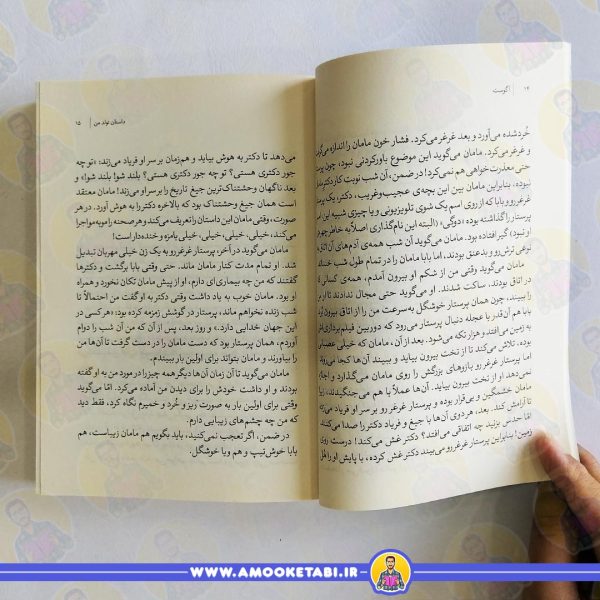 ۱۴ | آگوست
خُردشده می‌آورد و بعد غرغر می‌کرد. فشار خون مامان را اندازه می‌گرفت
و غرغر می‌کرد. مامان می‌گوید این موضوع باورکردنی نبود، چون
حتی معذرت‌خواهی هم نمی‌کرد! در ضمن، آن شب نوبت کار دکتر مامان
نبود. بنابراین مامان بین این بچه‌ی عجیب‌وغریب، دکتر، یک پرستار
غرغرو و بابا که از روی اسم یک شوی تلویزیونی و یا چیزی شبیه این اسم
پرستار را گذاشته بود «دوگی» (البته این نام‌گذاری اصلاً به خاطر چهره‌ی
او نبود) گیر افتاده بود. مامان می‌گوید آن شب همه‌ی آدم‌های آن اتاق
نوعی ترش‌رو و بدعنق بودند، اما بابا مامان را در تمام طول شب خنداند.
مامان می‌گوید وقتی من از شکم او بیرون آمدم، همه‌ی کسانی که
در اتاق بودند، ساکت شدند. او می‌گوید حتی مجال ندادند تا او
را ببیند، چون همان پرستار خوشگل به‌سرعت من را از اتاق بیرون برد.
بابا هم آن‌قدر با عجله دنبال پرستار می‌رود که دوربین فیلم‌برداری‌اش
به زمین می‌افتد و هزار تکه می‌شود. بعد از آن، مامان که خیلی عصبانی
بوده، تلاش می‌کند تا از تخت بیرون بیاید و ببیند آن‌ها کجا می‌روند،
اما پرستار غرغرو بازوهای بزرگش را روی مامان می‌گذارد و اجازه
نمی‌دهد او از تخت بیرون بیاید. آن‌ها عملاً با هم می‌جنگیدند، زیرا
مامان خشمگین و بی‌قرار بوده و پرستار غرغرو بر سر او فریاد می‌زده
تا آرامش کند. بعد، هردوی آن‌ها با جیغ و فریاد دکتر را صدا می‌کنند
اما حدس بزنید چه اتفاقی می‌افتد؟ دکتر غش می‌کند! درست روی
زمین! بنابراین پرستار غرغرو می‌بیند دکتر غش کرده، با پایش او را هُل
داستان تولد من | ۱۵
می‌دهد تا دکتر به هوش بیاید و هم‌زمان بر سر او فریاد می‌زند: «تو چه
جور دکتری هستی؟ تو چه جور دکتری هستی؟ بلند شو! بلند شو!» و
بعد ناگهان وحشتناک‌ترین جیغ تاریخ را بر سر او می‌زند! مامان معتقد
است همان جیغ وحشتناک بود که بالاخره دکتر را به هوش آورد. در هر
صورت، وقتی مامان این داستان را تعریف می‌کند و هر صحنه را موبه‌مو اجرا
می‌کند، خیلی، خیلی، خیلی، خیلی بامزه و خنده‌دار است!
مامان می‌گوید در آخر، پرستار غرغرو به یک زن خیلی مهربان تبدیل
شد. او تمام مدت کنار مامان ماند. حتی وقتی بابا برگشت و دکترها
گفتند که من چه بیماری‌ای دارم، او از پیش مامان تکان نخورد و همراه
او بود. مامان خوب به یاد داشت وقتی دکتر به او گفت من احتمالاً تا
شب زنده نخواهم ماند، پرستار در گوشش زمزمه کرده بود: «هرکسی در
این جهان خدایی دارد.» و روز بعد، پس از آن‌که من آن شب را دوام
آوردم، همان پرستار بود که دست مامان را در دست گرفت تا آن‌ها من
را بیاورند و مامان بتواند برای اولین بار ببیندم.
مامان می‌گوید تا آن زمان آن‌ها دیگر همه‌چیز را در مورد من به او گفته
بودند و او داشت خودش را برای دیدن من آماده می‌کرد. امّا می‌گوید
وقتی برای اولین بار به صورت ریز و خُرد و خمیرم نگاه کرد، فقط دید
که من چه چشم‌های زیبایی دارم.
در ضمن، اگر تعجب نمی‌کنید، باید بگویم هم مامان زیباست، هم
بابا خوش‌تیپ و هم ویا خوشگل.
WWW.AMOOKETABI.IR